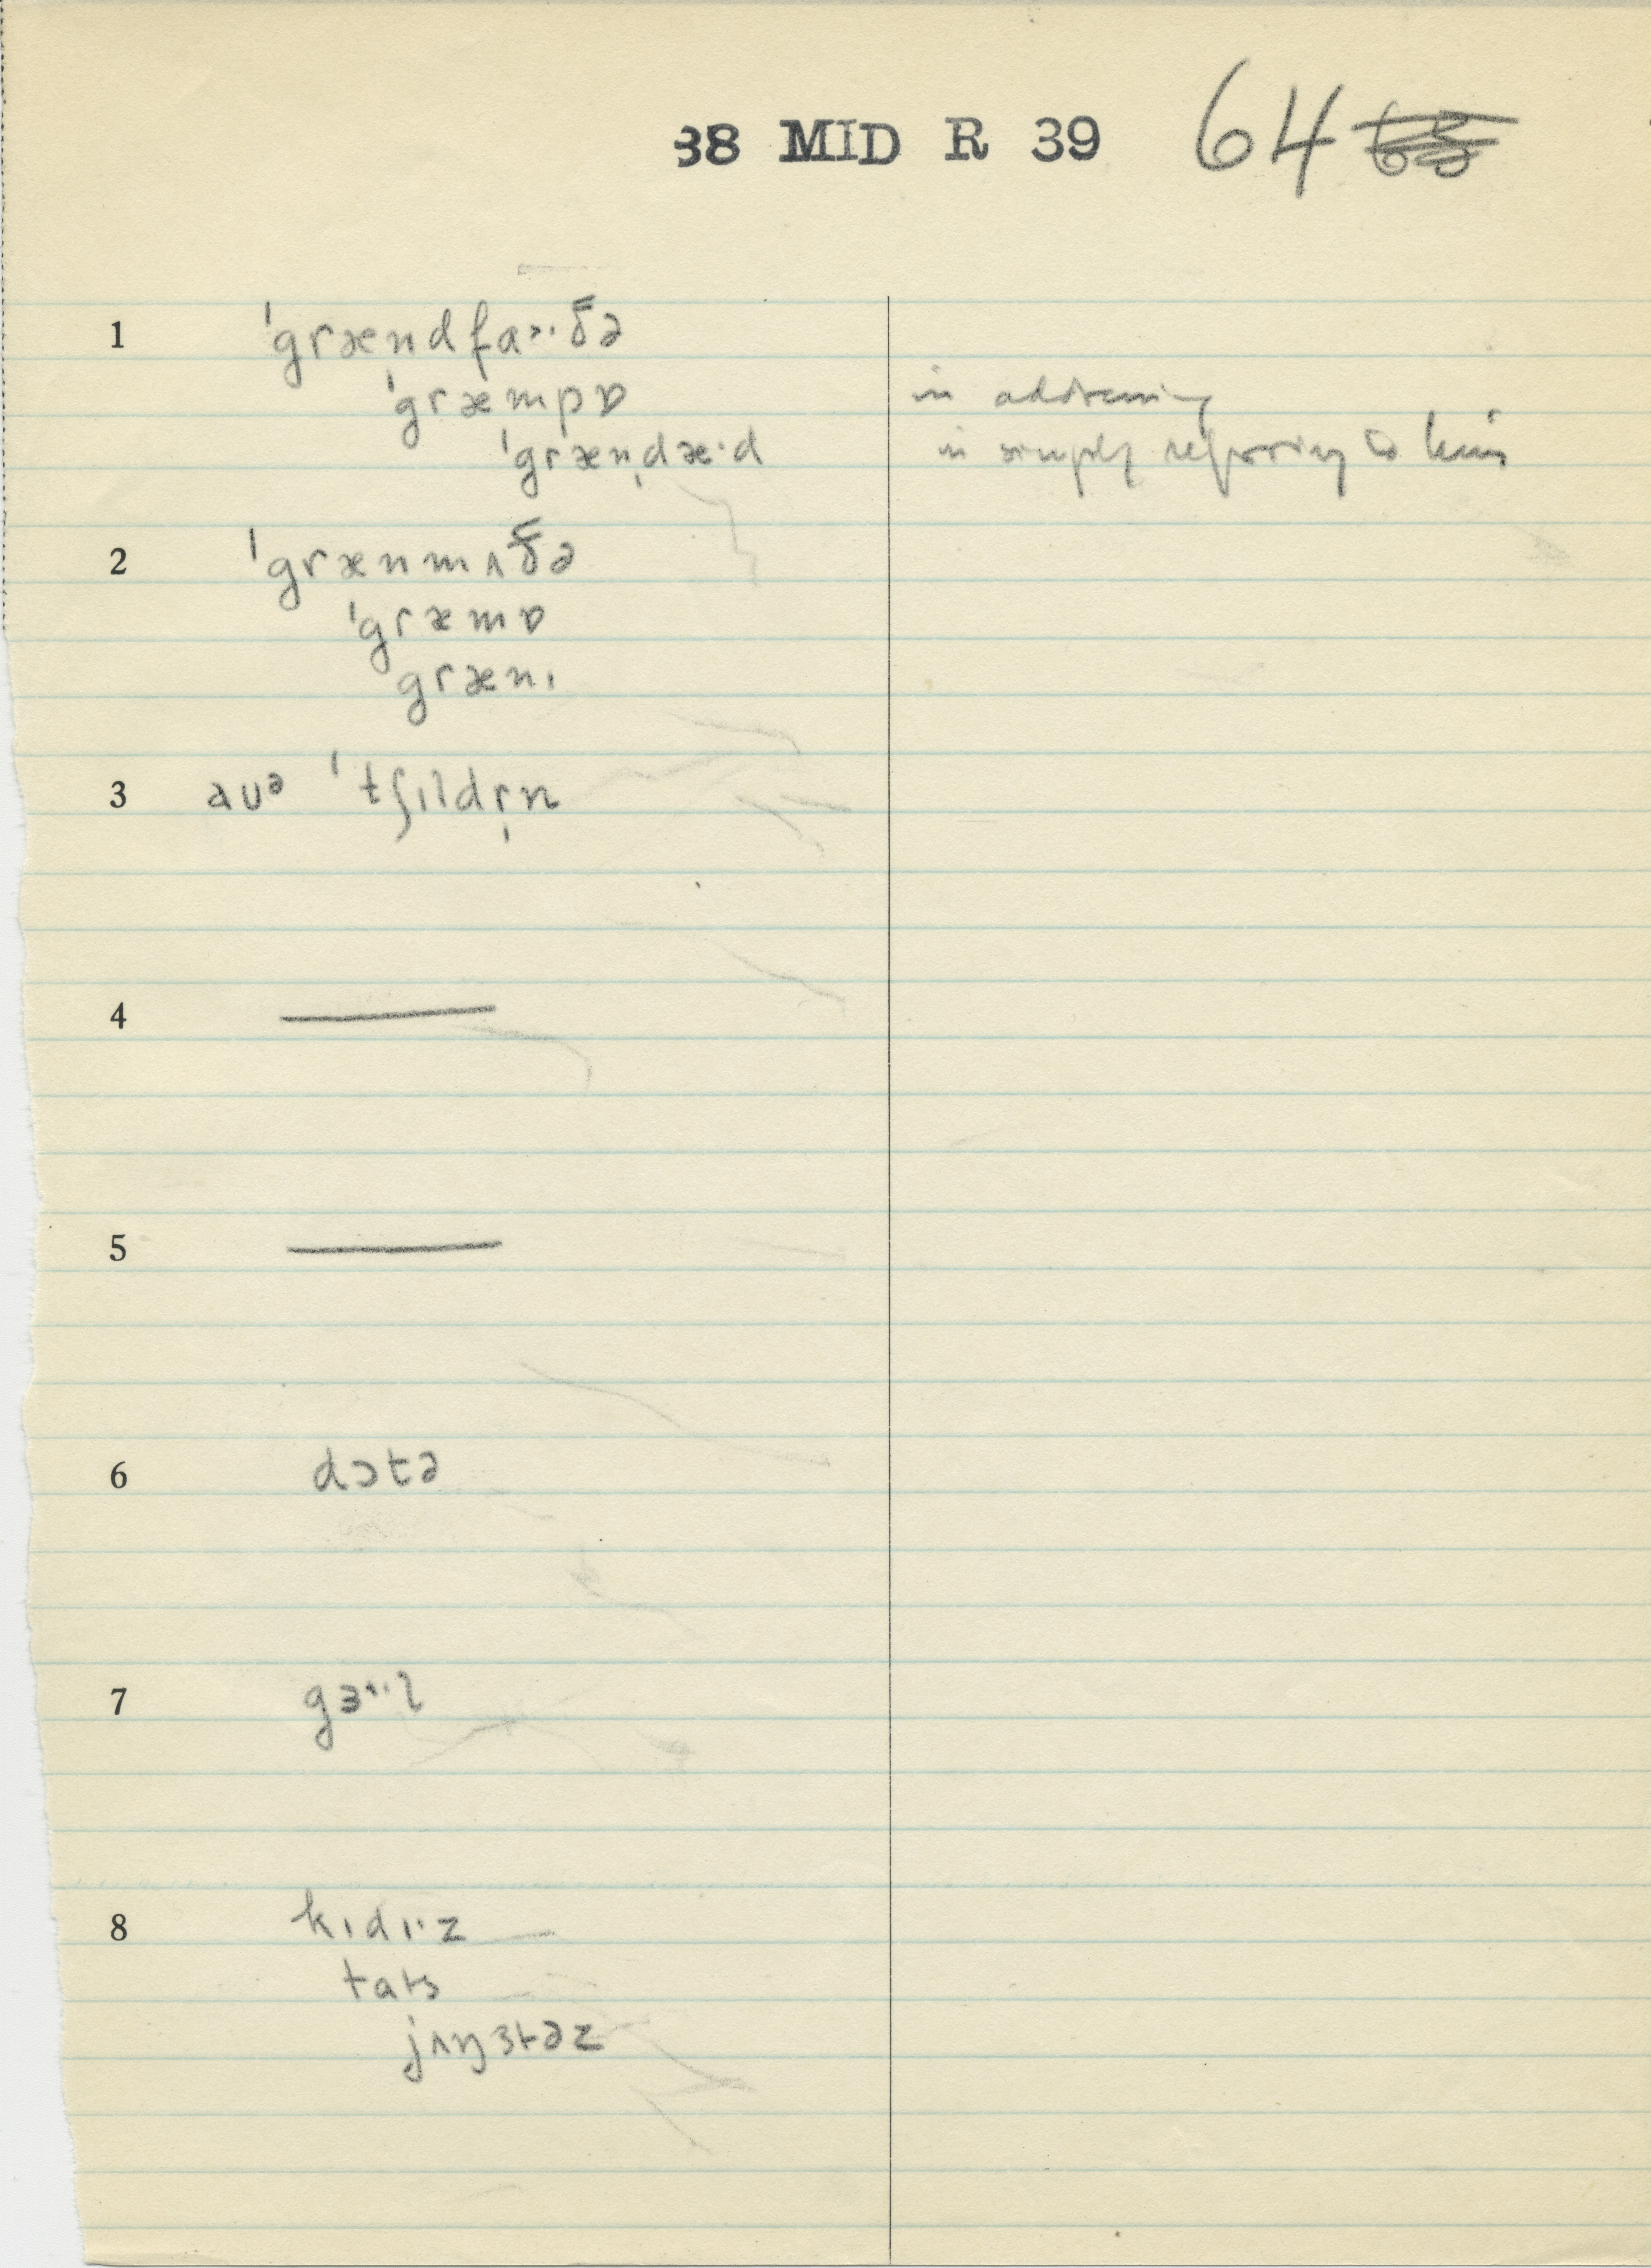 38 MID R 39 64
1 ˈgræn̩dfa˃·ðə
ˈgræmpɒ in addressing
ˈgræn̩dæ·d in simply referring to him
2 ˈgrænmʌðə
ˈgræmɒ
grænɪ
3 aʊᵊ ˈtʃɪldr̩n
4 —
5 —
6 dɔtə
7 gɜ˞·l
8 kɪdɪ·z
tats
jʌŋstəz